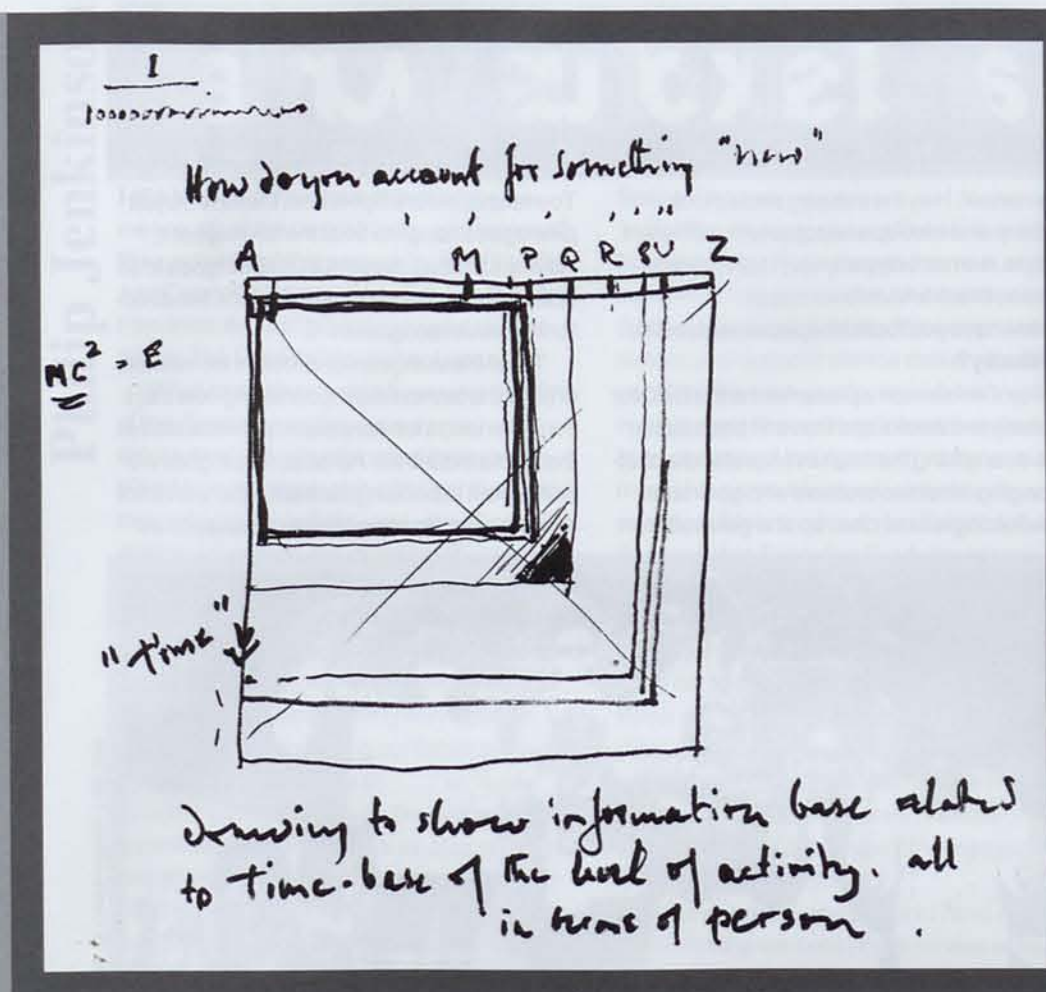 1
How do you account for something "new"
A M P Q R U Z
MC² = E
"time"
Drawing to show information base related
to time-base of the level of activity. all
in terms of person.